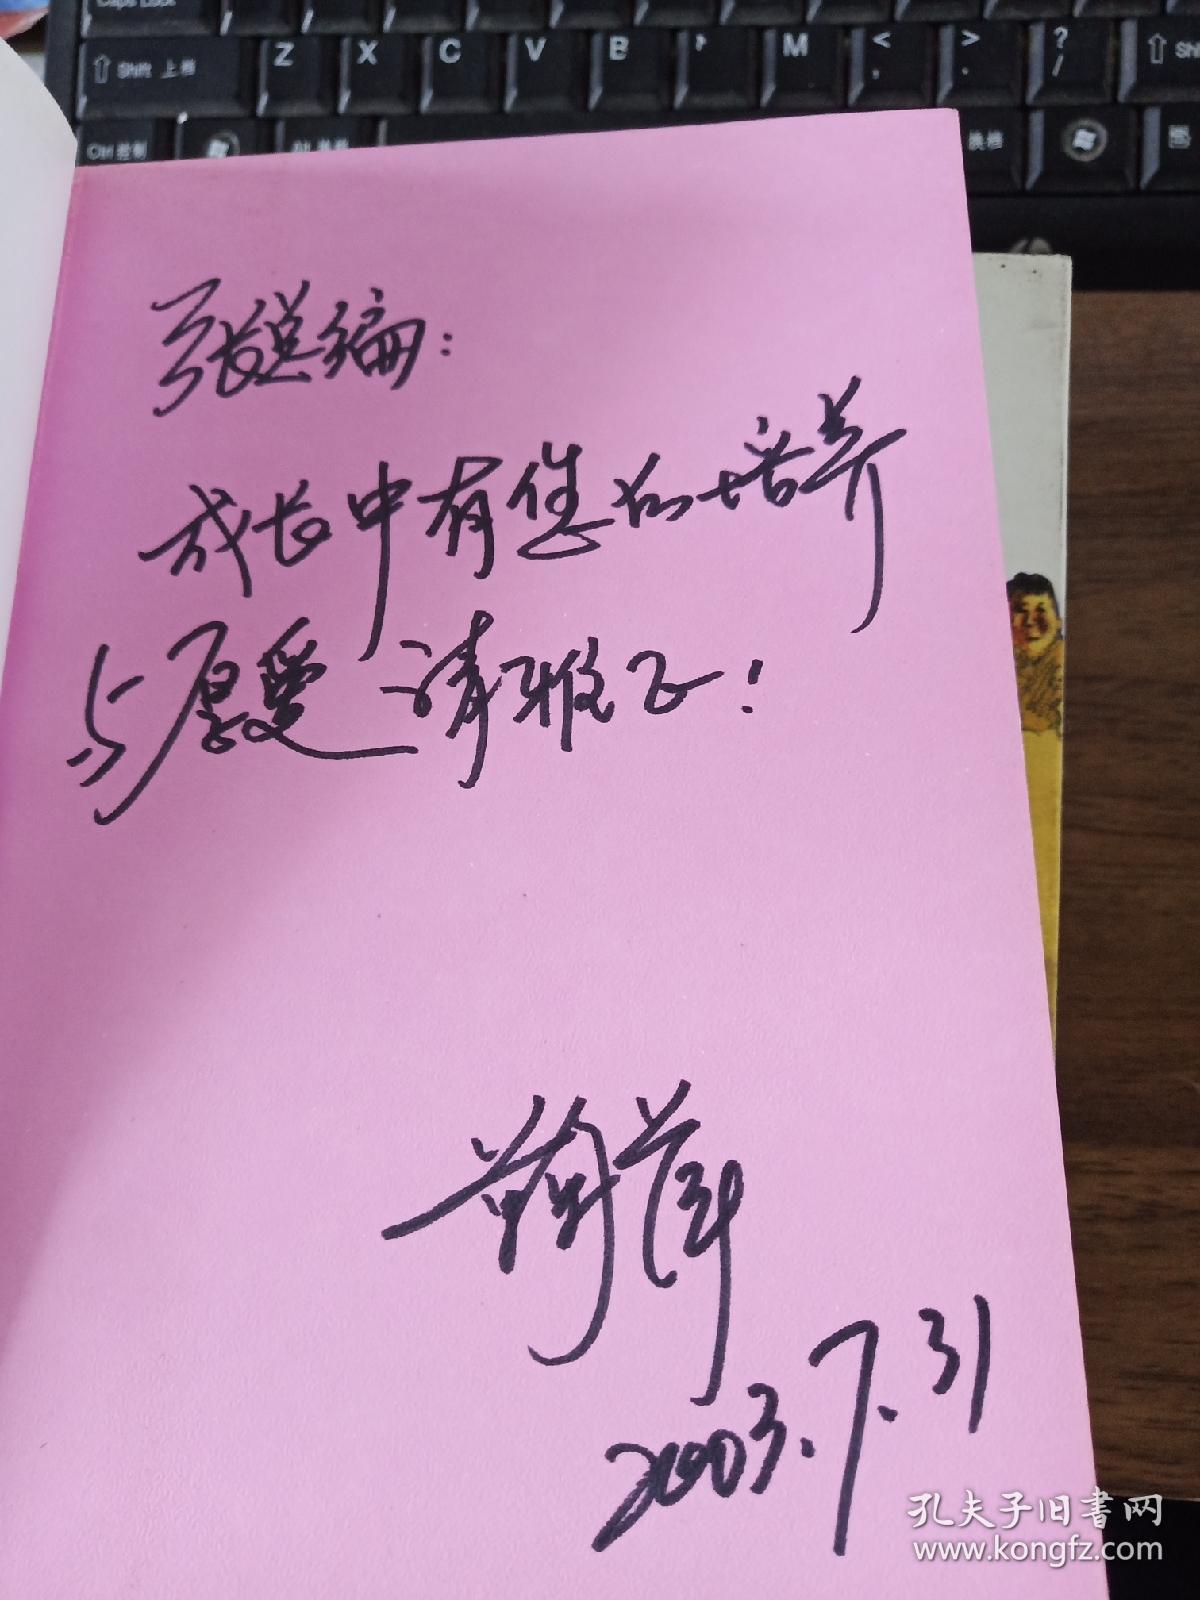 Caps Lock
Shift 上档
Z
X
C
V
B
M
<
,
>
.
?
/
Ctrl 控制
换档
张总编:
成长中有您的培养
与厚爱 请雅正!
2003.7.31
孔夫子旧书网
www.kongfz.com